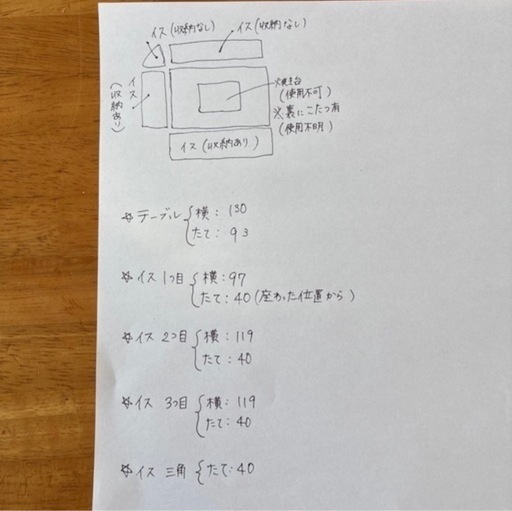 イス(収納なし)
イス(収納なし)
イス
(収納あり)
焼き台
(使用不可)
※裏にこたつ有
(使用不明)
イス(収納あり)
☆テーブル { 横: 130
たて: 93
☆イス 1つ目 { 横: 97
たて: 40 (座わった位置から)
☆イス 2つ目 { 横: 119
たて: 40
☆イス 3つ目 { 横: 119
たて: 40
☆イス 三角 { たて: 40